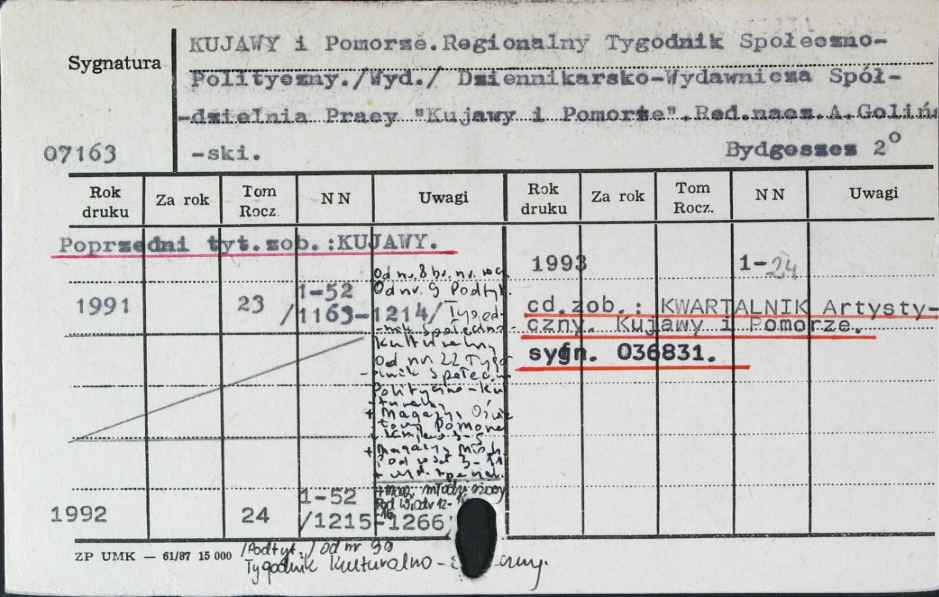 Sygnatura
07163
KUJAWY i Pomorze.Regionalny Tygodnik Społeczno-
Polityczny./Wyd./ Dziennikarsko-Wydawnicza Spół-
-dzielnia Pracy "Kujawy i Pomorze".Red.nacz.A.Golińs
-ski. Bydgoszcz 2°
Rok druku Za rok Tom Rocz. NN Uwagi Rok druku Za rok Tom Rocz. NN Uwagi
Poprzedni tyt.zob.:KUJAWY.
1991 23 1-52
/1163-1214/
Od nr. 8 br. nr.
Od nr. 9 Podtyt.
Tygod-
-nik Społeczno-
kulturalny
Od nr. 22 Tygo
-nik Społecz-
Polityczno-ku
-turalny
+ Magazyn
Pomorze
+ Magazyn
1992 24 1-52
/1215-1266
1993 1-24
cd.zob.: KWARTALNIK Artysty-
czny. Kujawy i Pomorze.
sygn. 036831.
ZP UMK — 61/87 15 000
/Podtyt./ od nr 90
Tygodnik Kulturalno-